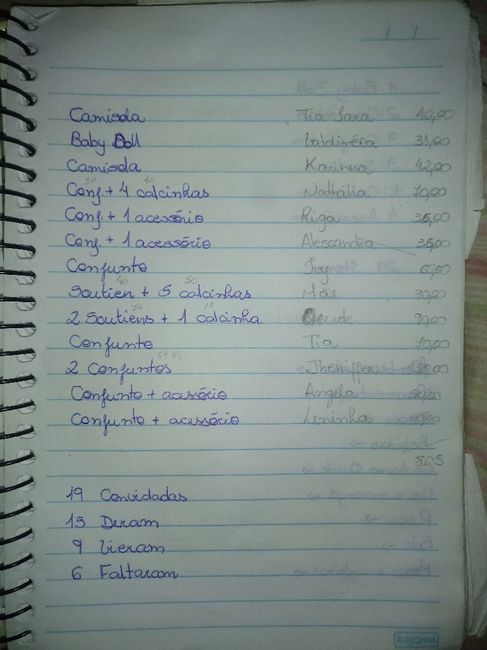 Camisola Tia Sara 40,00
Baby Doll Valdinéia 31,00
Camisola Karinna 42,00
Conf + 4 calcinhas Nathália 70,00
Conf + 1 acessório Riga 36,00
Conf + 1 acessório Alessandra 36,00
Conjunto
Soutien + 5 calcinhas Mãe 90,00
2 Soutiens + 1 calcinha 90,00
Conjunto Tia 70,00
2 Conjuntos
Conjunto + acessório Angela
Conjunto + acessório Leninha
805
19 Convidadas
13 Deram
9 Vieram
6 Faltaram